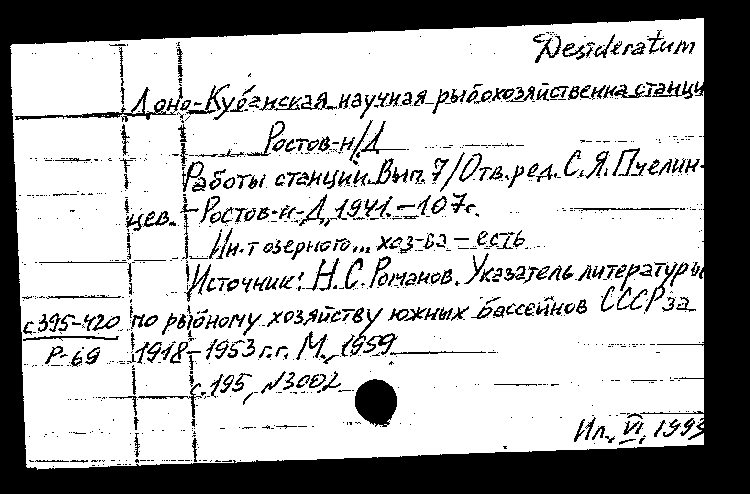 Desideratum
Доно-Кубанская научная рыбохозяйственна станци
Ростов-н/Д
Работы станции. Вып. 7/Отв. ред. С. Я. Пчелин-
цев. – Ростов-н-Д, 1941. – 107с.
Ин-т озерного... хоз-ва – есть
Источник: Н. С. Романов. Указатель литературы
с395-420 по рыбному хозяйству южных бассейнов СССР за
Р-69 1918 – 1953 г.г. М., 1959
с. 195, №3002
Ил., VI, 1993